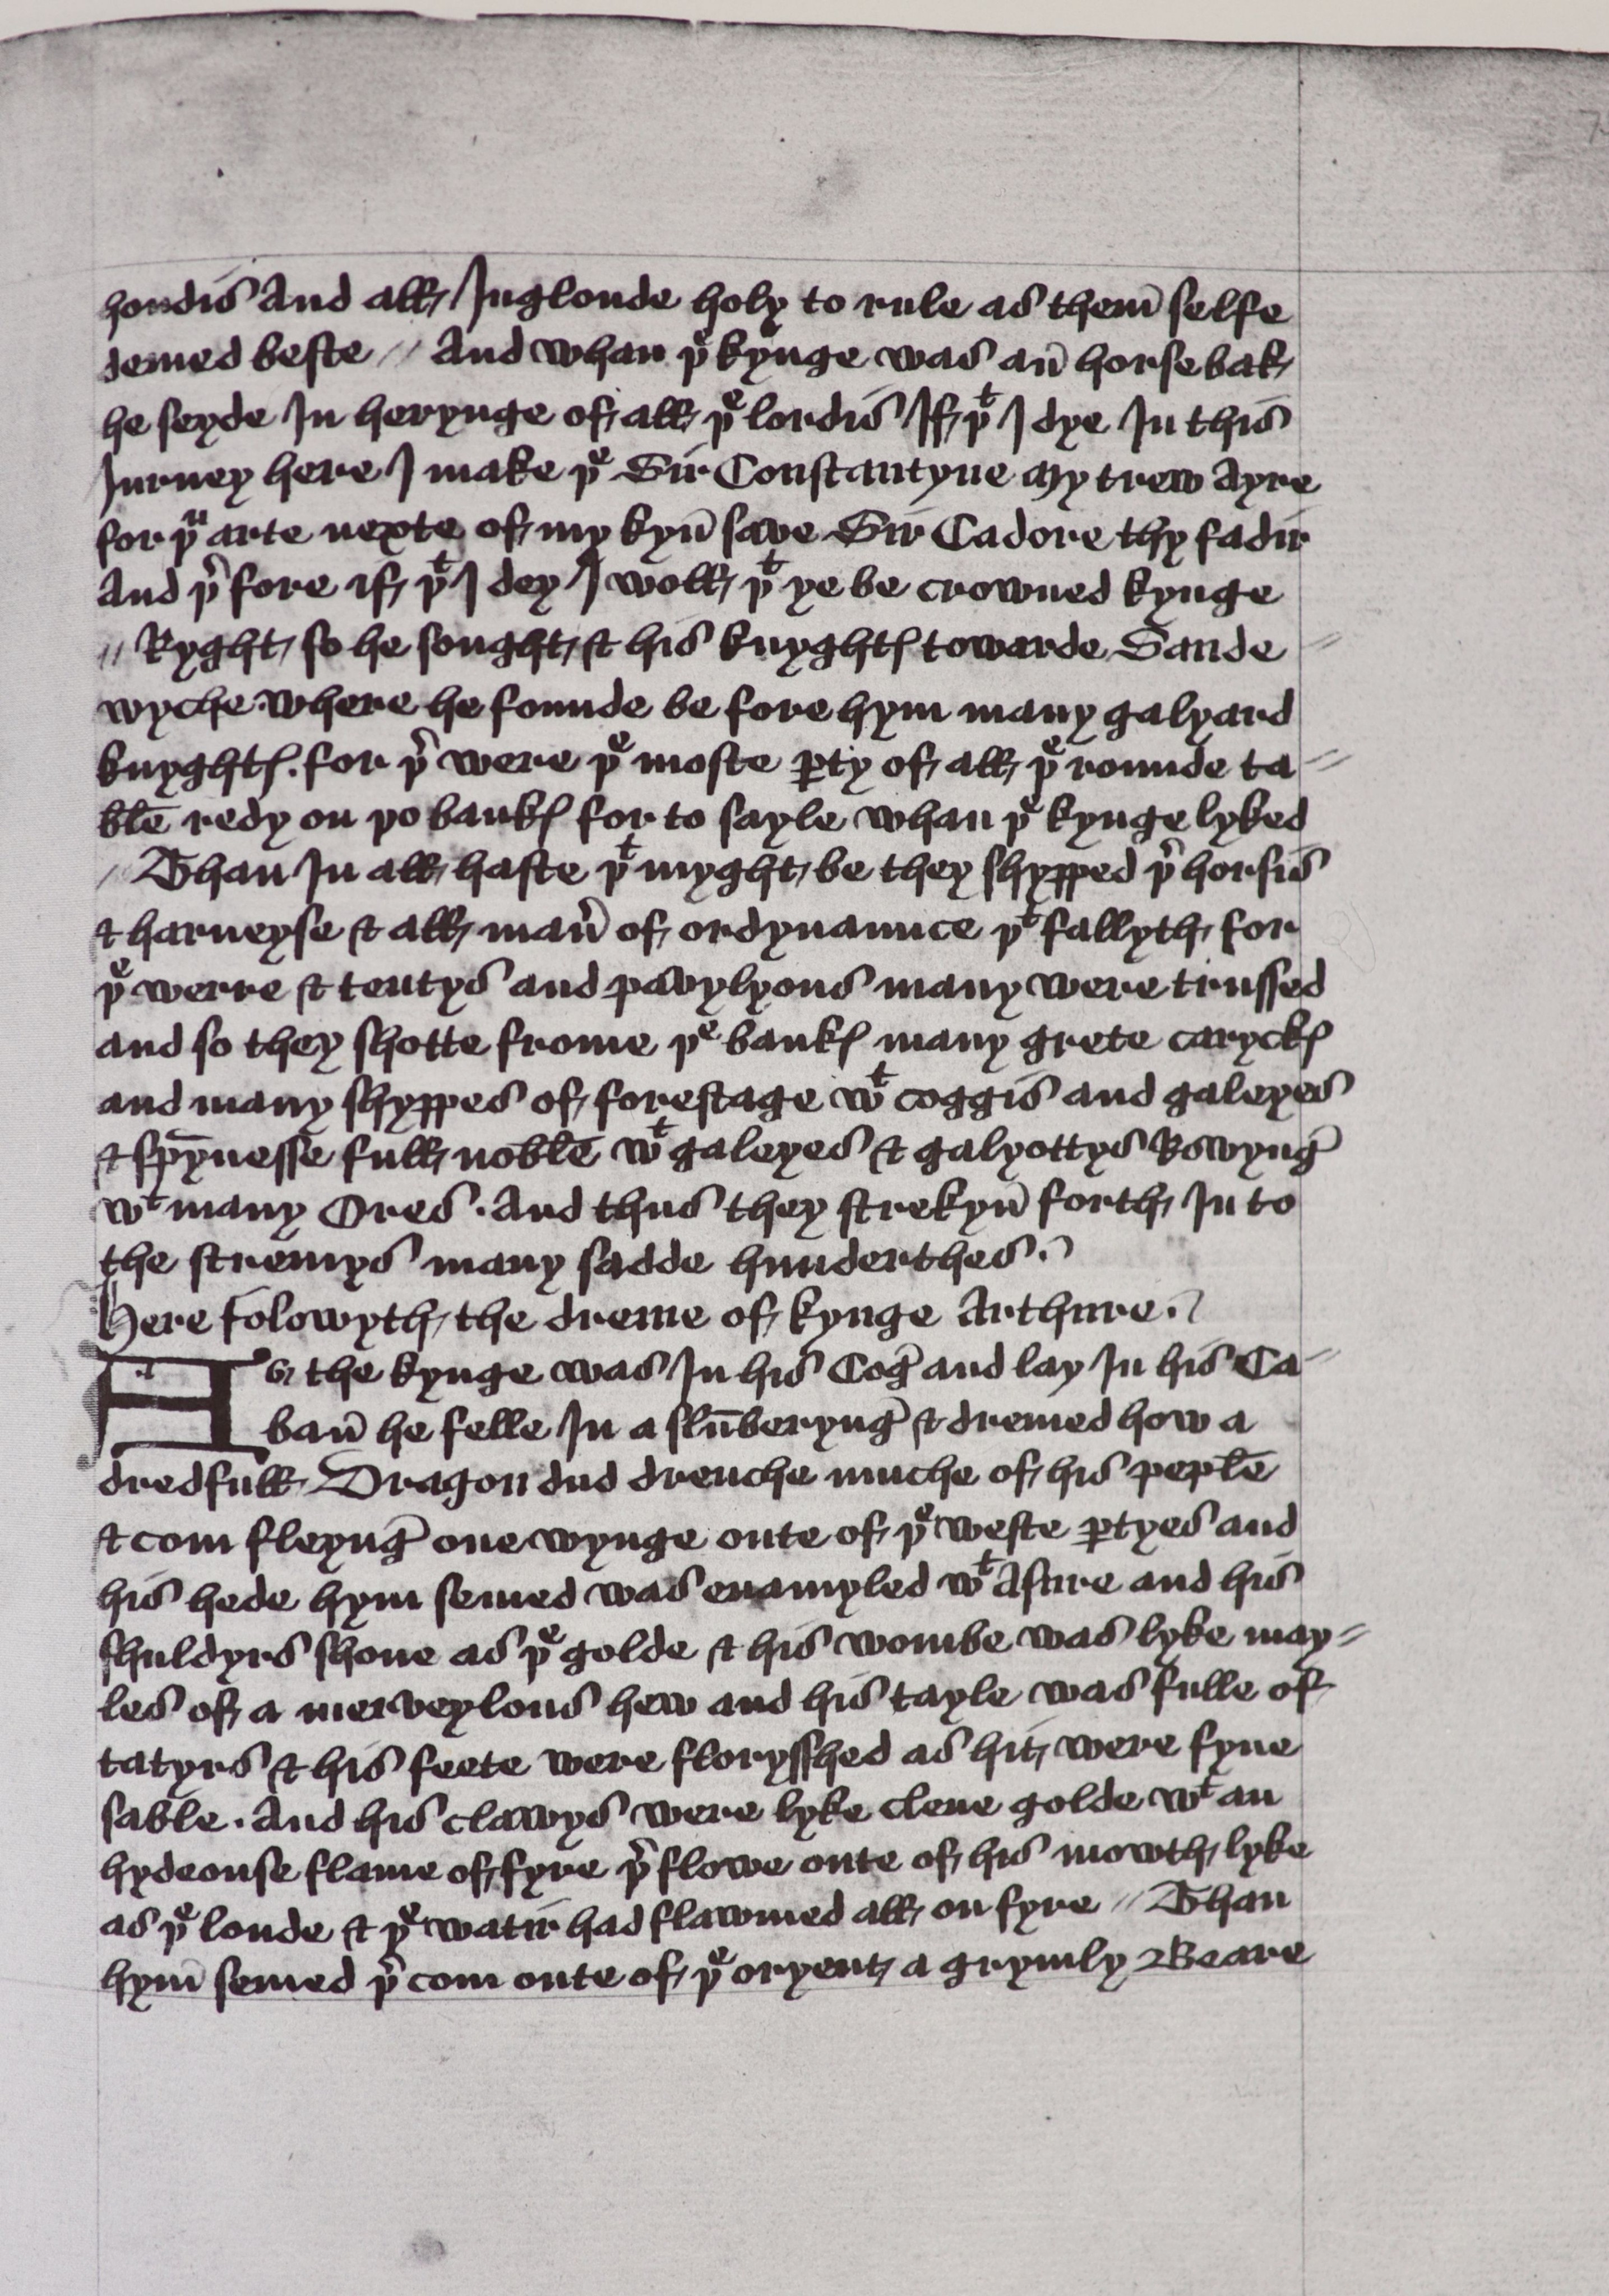 hondis And all Inglonde holy to rule as them̄ selfe
demed beste // And whan þᵉ kynge was an̄ horse bak
he seyde In herynge of all þᵉ lordis If þᵗ I dye In this
Jurney here I make þᵉ Sir Constantyne My trew Ayre
for þᵘ arte nexte of my kyn̄ save Sir Cadore thy fadir
And þ̉ fore if þᵗ I dey I woll þᵗ ye be crowned kynge
// Ryght so he sought ⁊ his knyghtꝭ towarde Sande //
wyche where he founde be fore hym many galyard
knyghtꝭ . for þ̉ were þᵉ moste ꝑty of all þᵉ rounde ta //
blē redy on þo bankꝭ for to sayle whan þᵉ kynge lyked
// Than In all haste þᵗ myght be they shypped þ̉ horsis
⁊ harneyse ⁊ all man̉ of ordynaunce þᵗ fallyth for
þᵉ werre ⁊ tentys and pavylyons many were trussed
and so they shotte frome þᵉ bankꝭ many grete caryckꝭ
and many shyppes of forestage wᵗ coggis and galeyes
⁊ spȳnesse full noblē wᵗ galeyes ⁊ galyottys Rowynḡ
wᵗ many Ores . And thus they strekyn̄ forth In to
the stremys many sadde hunderthes .
Here folowyth the dreme of kynge Arthure .
As the kynge was In his Coḡ and lay In his Ca //
ban̄ he felle In a slūberynḡ ⁊ dremed how a
dredfull Dragon dud drenche muche of his peplē
⁊ com fleynḡ one wynge oute of þᵉ weste ꝑtyes and
his hede hym semed was enamyled wᵗ Asure and his
shuldyrs shone as þᵉ golde ⁊ his wombe was lyke may //
les of a merveylous hew and his tayle was fulle of
tatyrs ⁊ his feete were florysshed as hit were fyne
sable . And his clawys were lyke clene golde wᵗ an
hydeouse flame of fyre þ̉ flowe oute of his mowth lyke
as þᵉ londe ⁊ þᵉ watir had flawmed all on fyre // Than
hym̄ semed þ̉ com oute of þᵉ oryent a grymly Beare